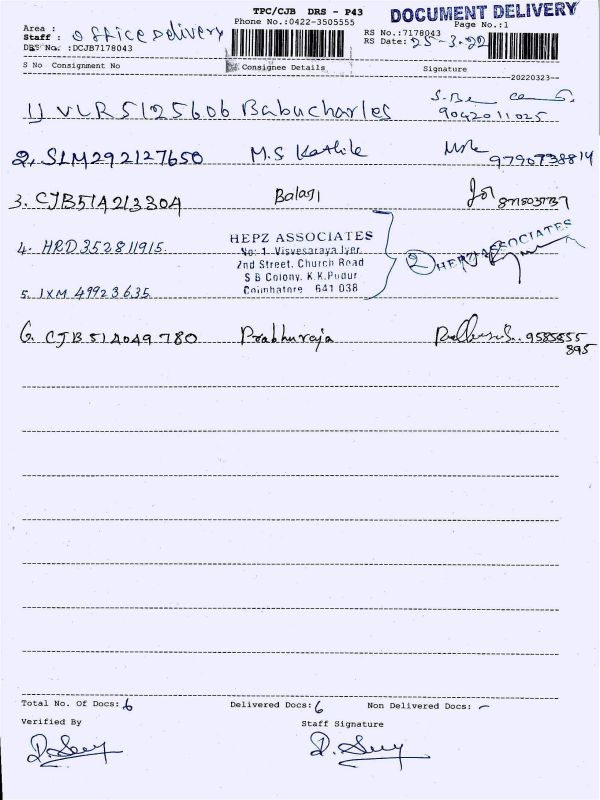 TPC/CJB DRS - P43
DOCUMENT DELIVERY
Area :
Phone No.:0422-3505555
Page No.:1
Staff : office Delivery
RS No.:7178043
DRS No. :DCJB7178043
RS Date: 25-3-22
S No Consignment No
Consignee Details
Signature
20220323
1) VLR5125606 Babucharles
9042011025
2, SLM292127650 M.S Karthik
9790738814
3. CJB51A213304 Balaji
HEPZ ASSOCIATES
No: 1, Visvesaraya Iyer
2nd Street, Church Road
S B Colony, K.K.Pudur
Coimbatore 641 038
4. HRD352811915
② HEPZ ASSOCIATES
5. IXM 49923635
6. CJB 51A049780 Prabhuraja
9585855
895
Total No. Of Docs: 6 Delivered Docs: 6 Non Delivered Docs: -
Verified By
Staff Signature